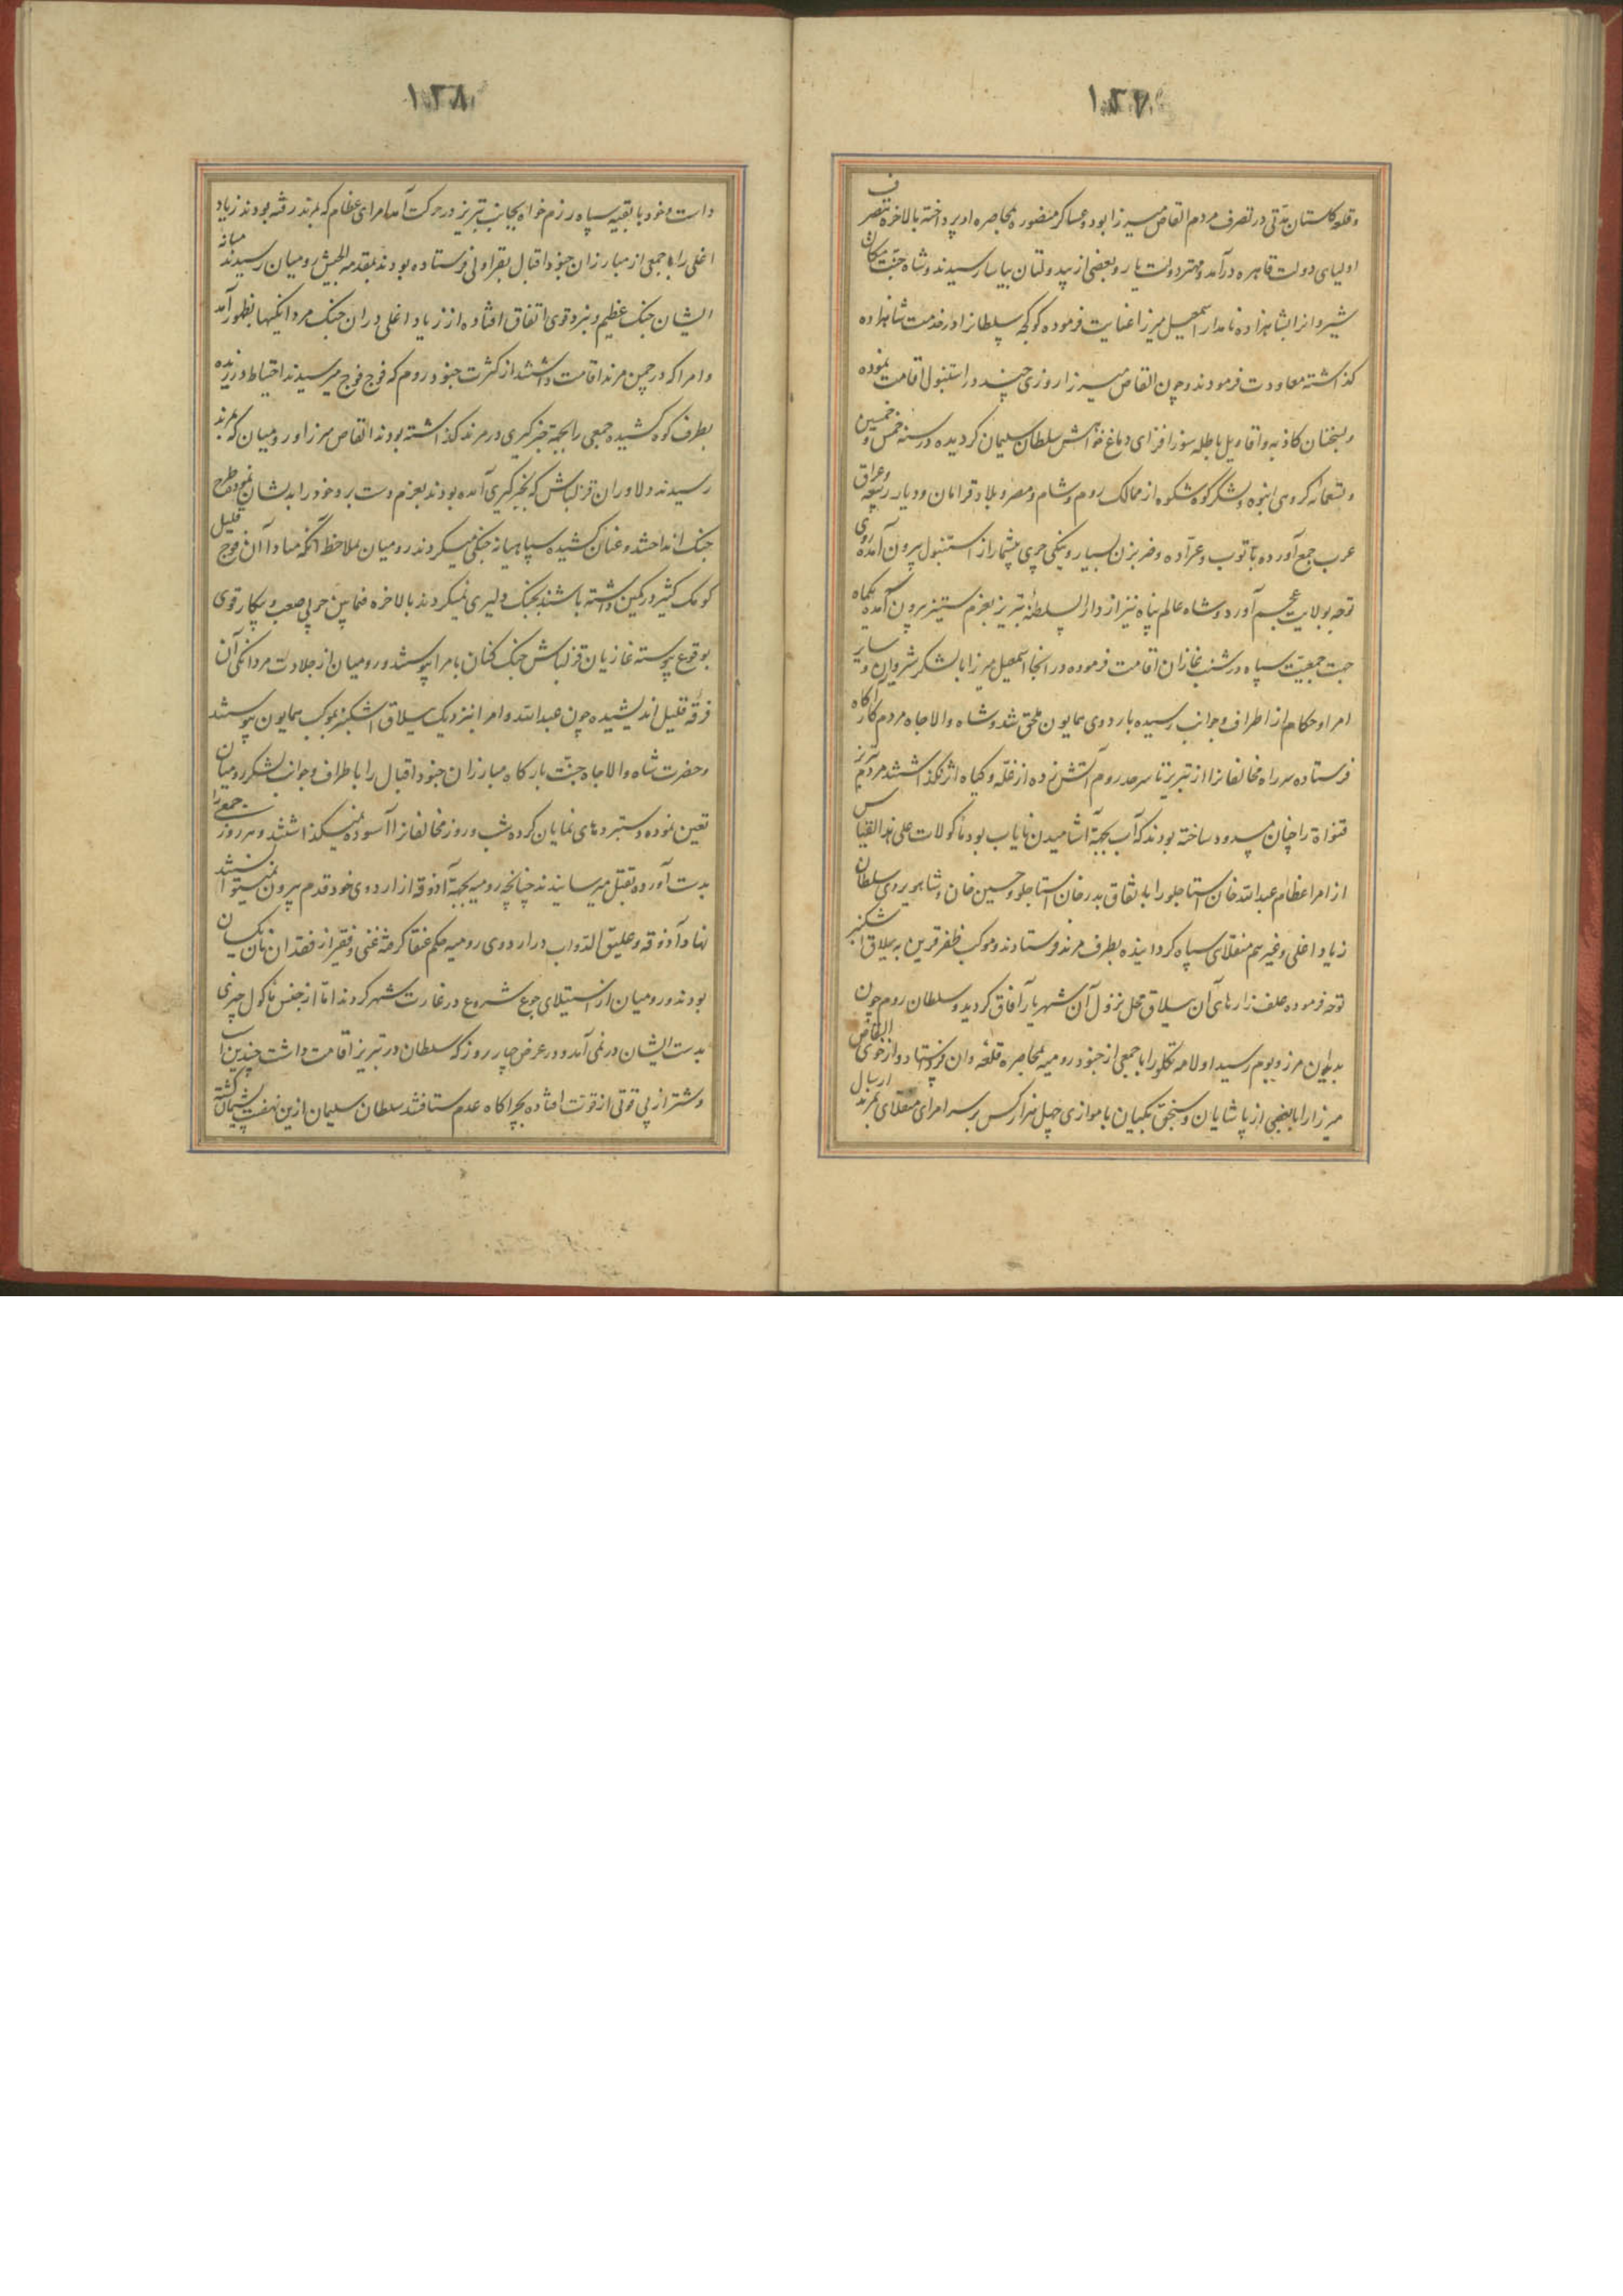 ۱۲۷
وقلعه کلستان مدتی در تصرف مردم القاص میرزا بود وعساکر منصوره بمحاصره او پرداخته بالاخره بتصرف
اولیای دولت قاهره درآمد ومهتر دولت یار وبعضی از بیدولتان بیاسا رسیدند وشاه جنت مکان
شیروانرا بشاهزاده نامدار اسمعیل میرزا عنایت فرموده کوکجه سلطانرا در خدمت شاهزاده
کذاشته معاودت فرمودند وچون القاص میرزا روزی چند در استنبول اقامت نموده
وبسخنان کاذبه واقاویل باطله سودا فزای دماغ خواهش سلطان سلیمان کردیده در سنه خمس وخمسین
وتسعمائه کروهی انبوه ولشکر کوه شکوه از ممالک روم وشام ومصر وبلاد قرامان ودیار ربیعه وعراق
عرب جمع آورده با توب وعراده وضربزن بسیار وینکی چری بیشمار از استنبول بیرون آمده روی
توجه بولایت عجم آورد وشاه عالم پناه نیز از دارالسلطنه تبریز بعزم ستیز بیرون آمده یکماه
جهت جمعیت سپاه در شنب غازان اقامت فرموده در انجا اسمعیل میرزا با لشکر شیروان وسایر
امرا وحکام از اطراف وجوانب رسیده باردوی همایون ملحق شد وشاه والاجاه مردم کار آکاه
فرستاده سر راه مخالفانرا از تبریز تا سرحد روم آتش زده از غله وکیاه اثر نکذاشتند مردم تبریز
قنواة را چنان مسدود ساخته بودند که آب بجهة آشامیدن نایاب بود ماکولات علی هذا القیاس
از امرا عظام عبدالله خان استاجلو را باتفاق بدرخان استاجلو وحسین خان وشاهویردی سلطان
زیاد اغلی وغیرهم منقلای سپاه کردانیده بطرف مرند فرستادند وموکب ظفرقرین به ییلاق اشکنبر
توجه فرموده علف زارهای آن ییلاق محل نزول آن شهریار آفاق کردید وسلطان روم چون
بدان مرز وبوم رسید اولامه تکلو را با جمعی از جنود رومیه بمحاصره قلعه وان فرستاد واز خوی القاص
میرزا را با بعضی از پاشایان وسنجق بکیان با موازی چهل هزار کس بر سر امرای منقلای بمرند ارسال
۱۲۸
داشت وخود با بقیه سپاه رزم خواه بجانب تبریز در حرکت آمد امرای عظام که بمرند رفته بودند زیاد
اغلی را با جمعی از مبارزان جنود اقبال بقراولی فرستاده بودند بمقدمه الجیش رومیان رسیدند میانه
ایشان جنک عظیم ونبرد قوی اتفاق افتاده از زیاد اغلی در ان جنک مردانکیها بظهور آمد
وامرا که در چمن مرند اقامت داشتند از کثرت جنود روم که فوج فوج میرسیدند احتیاط ورزیده
بطرف کوه کشیده جمعی را بجهة خبرکیری در مرند کذاشته بودند القاص میرزا ورومیان که بمرند
رسیدند دلاوران قزلباش که بخبرکیری آمده بودند بعزم دست برد خود را بدیشان نموده طرح
جنک انداختند وعنان کشیده سپاهیانه جنکی میکردند رومیان بملاحظه آنکه مبادا آن فوج قلیل
کومک کثیر در کمین داشته باشند بجنک دلیری نمیکردند بالاخره فیمابین حربی صعب وپیکار قوی
بوقوع پیوسته غازیان قزلباش جنک کنان بامرا پیوستند ورومیان از جلادت مردانکی آن
فرقه قلیل اندیشیده چون عبدالله وامرا نزدیک ییلاق اشکنبر بموکب همایون پیوستند
وحضرت شاه والاجاه جنت بارکاه مبارزان جنود اقبال را باطراف وجوانب لشکر رومیان
تعین نموده دستبردهای نمایان کرده شب وروز مخالفانرا آسوده نمیکذاشتند وهر روز جمعی را
بدست آورده بقتل میرسانیدند چنانچه رومیه بجهة آذوقه از اردوی خود قدم بیرون نمیتوانستند
نهاد آذوقه وعلیق الدواب در اردوی رومیه حکم عنقا کرفته غنی وفقیر از فقدان نان یکسان
بودند ورومیان از استیلای جوع شروع در غارت شهر کردند اما از جنس ماکول چیزی
بدست ایشان در نمی آمد ودر عرض چهار روز که سلطان در تبریز اقامت داشت چندین اسب
وشتر از بی قوتی از قوت افتاده بچراکاه عدم شتافتند سلطان سلیمان ازین نهضت پشیمان کشته